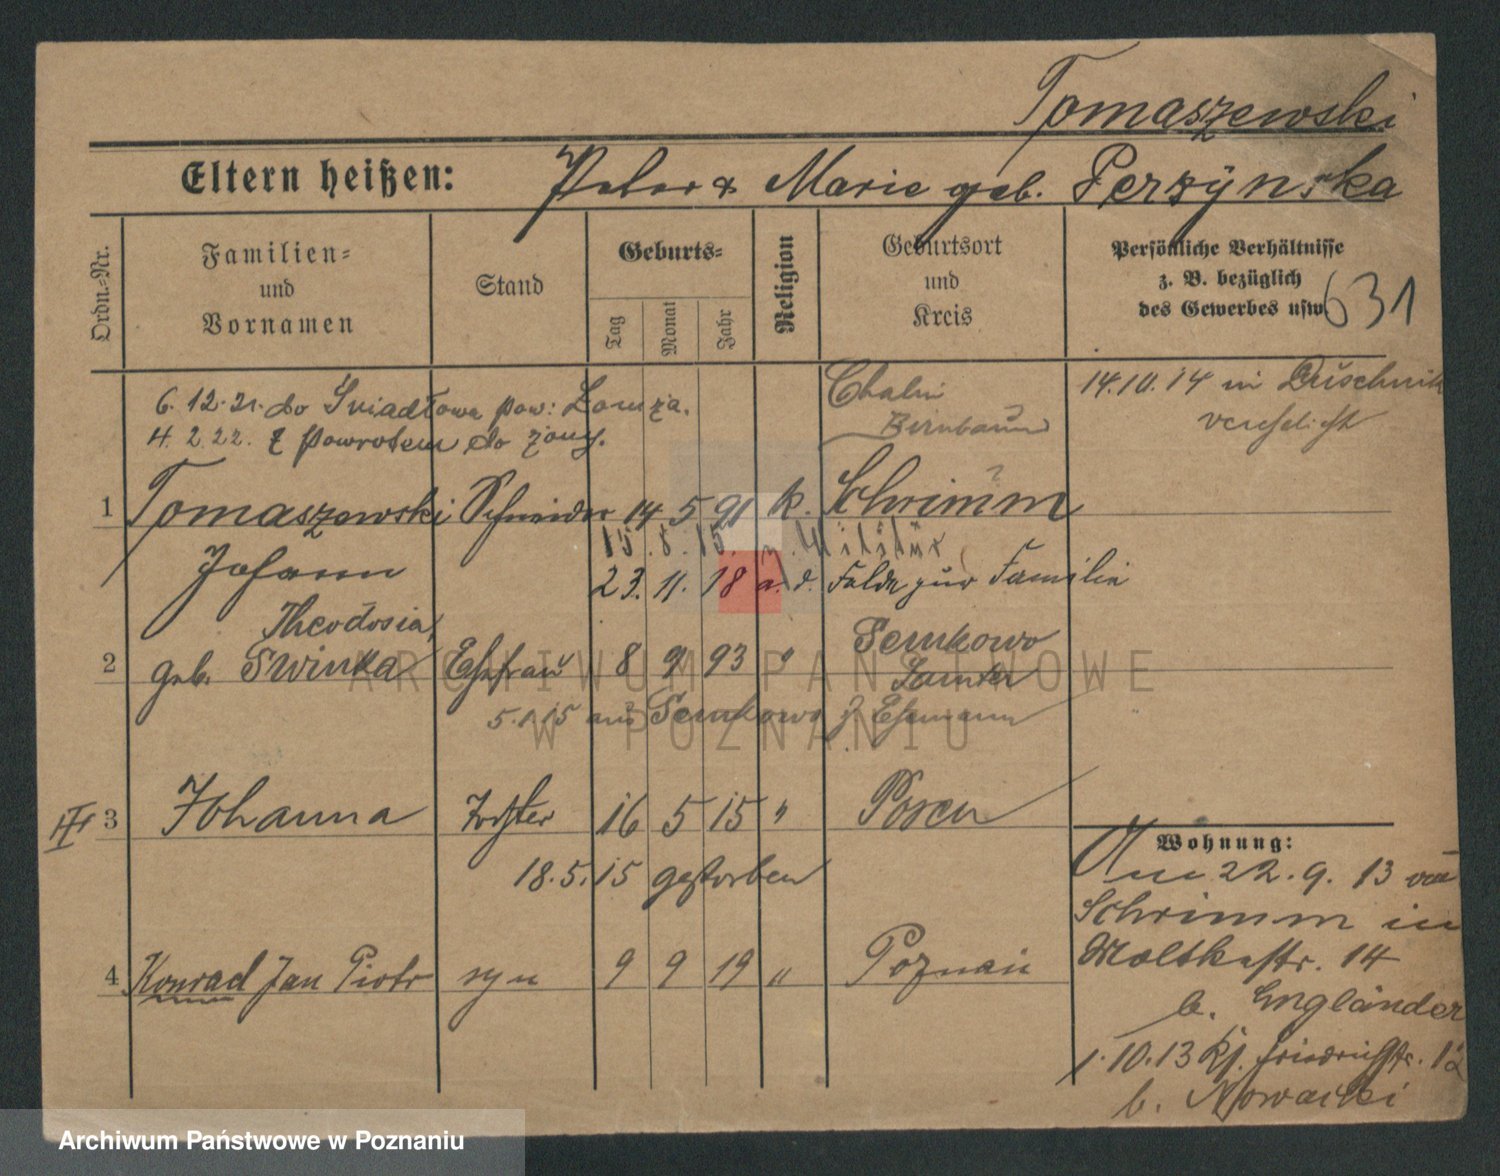 Tomaszewski
Eltern heißen: Peter & Marie geb. Perzyńska
Ordn.-Nr.
Familien-
und
Vornamen
Stand
Geburts-
Tag
Monat
Jahr
Religion
Geburtsort
und
Kreis
Persönliche Verhältnisse
z. B. bezüglich
des Gewerbes usw
631
6.12.21. do Śniadłowa pow: Łomża.
4.2.22. z powrotem do żony.
Birnbaum
14.10.14 in Duschnik
verehelicht
1 Tomaszewski Schneider 14 5 91 k. Schrimm
Johann
15.8.15. z. Militär
23.11.18 a. d. Felde zur Familie
Theodosia,
2 geb. Swinka Ehefrau 8 9 93 " Semkowo
Samter
5.1.15 aus Semkowo z. Ehemann
III 3 Johanna Tochter 16 5 15 " Posen
18.5.15 gestorben
4 Konrad Jan Piotr syn 9 9 19 " Poznań
Wohnung:
Am 22.9.13 von
Schrimm in
Moltkestr. 14
b. Engländer
1.10.13 Kf. Friedrichstr. 12
b. Nowacki
ARCHIWUM PAŃSTWOWE
W POZNANIU
Archiwum Państwowe w Poznaniu